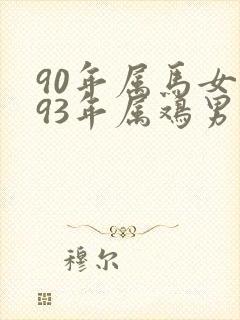 90年属马女
93年属鸡男
穆尔